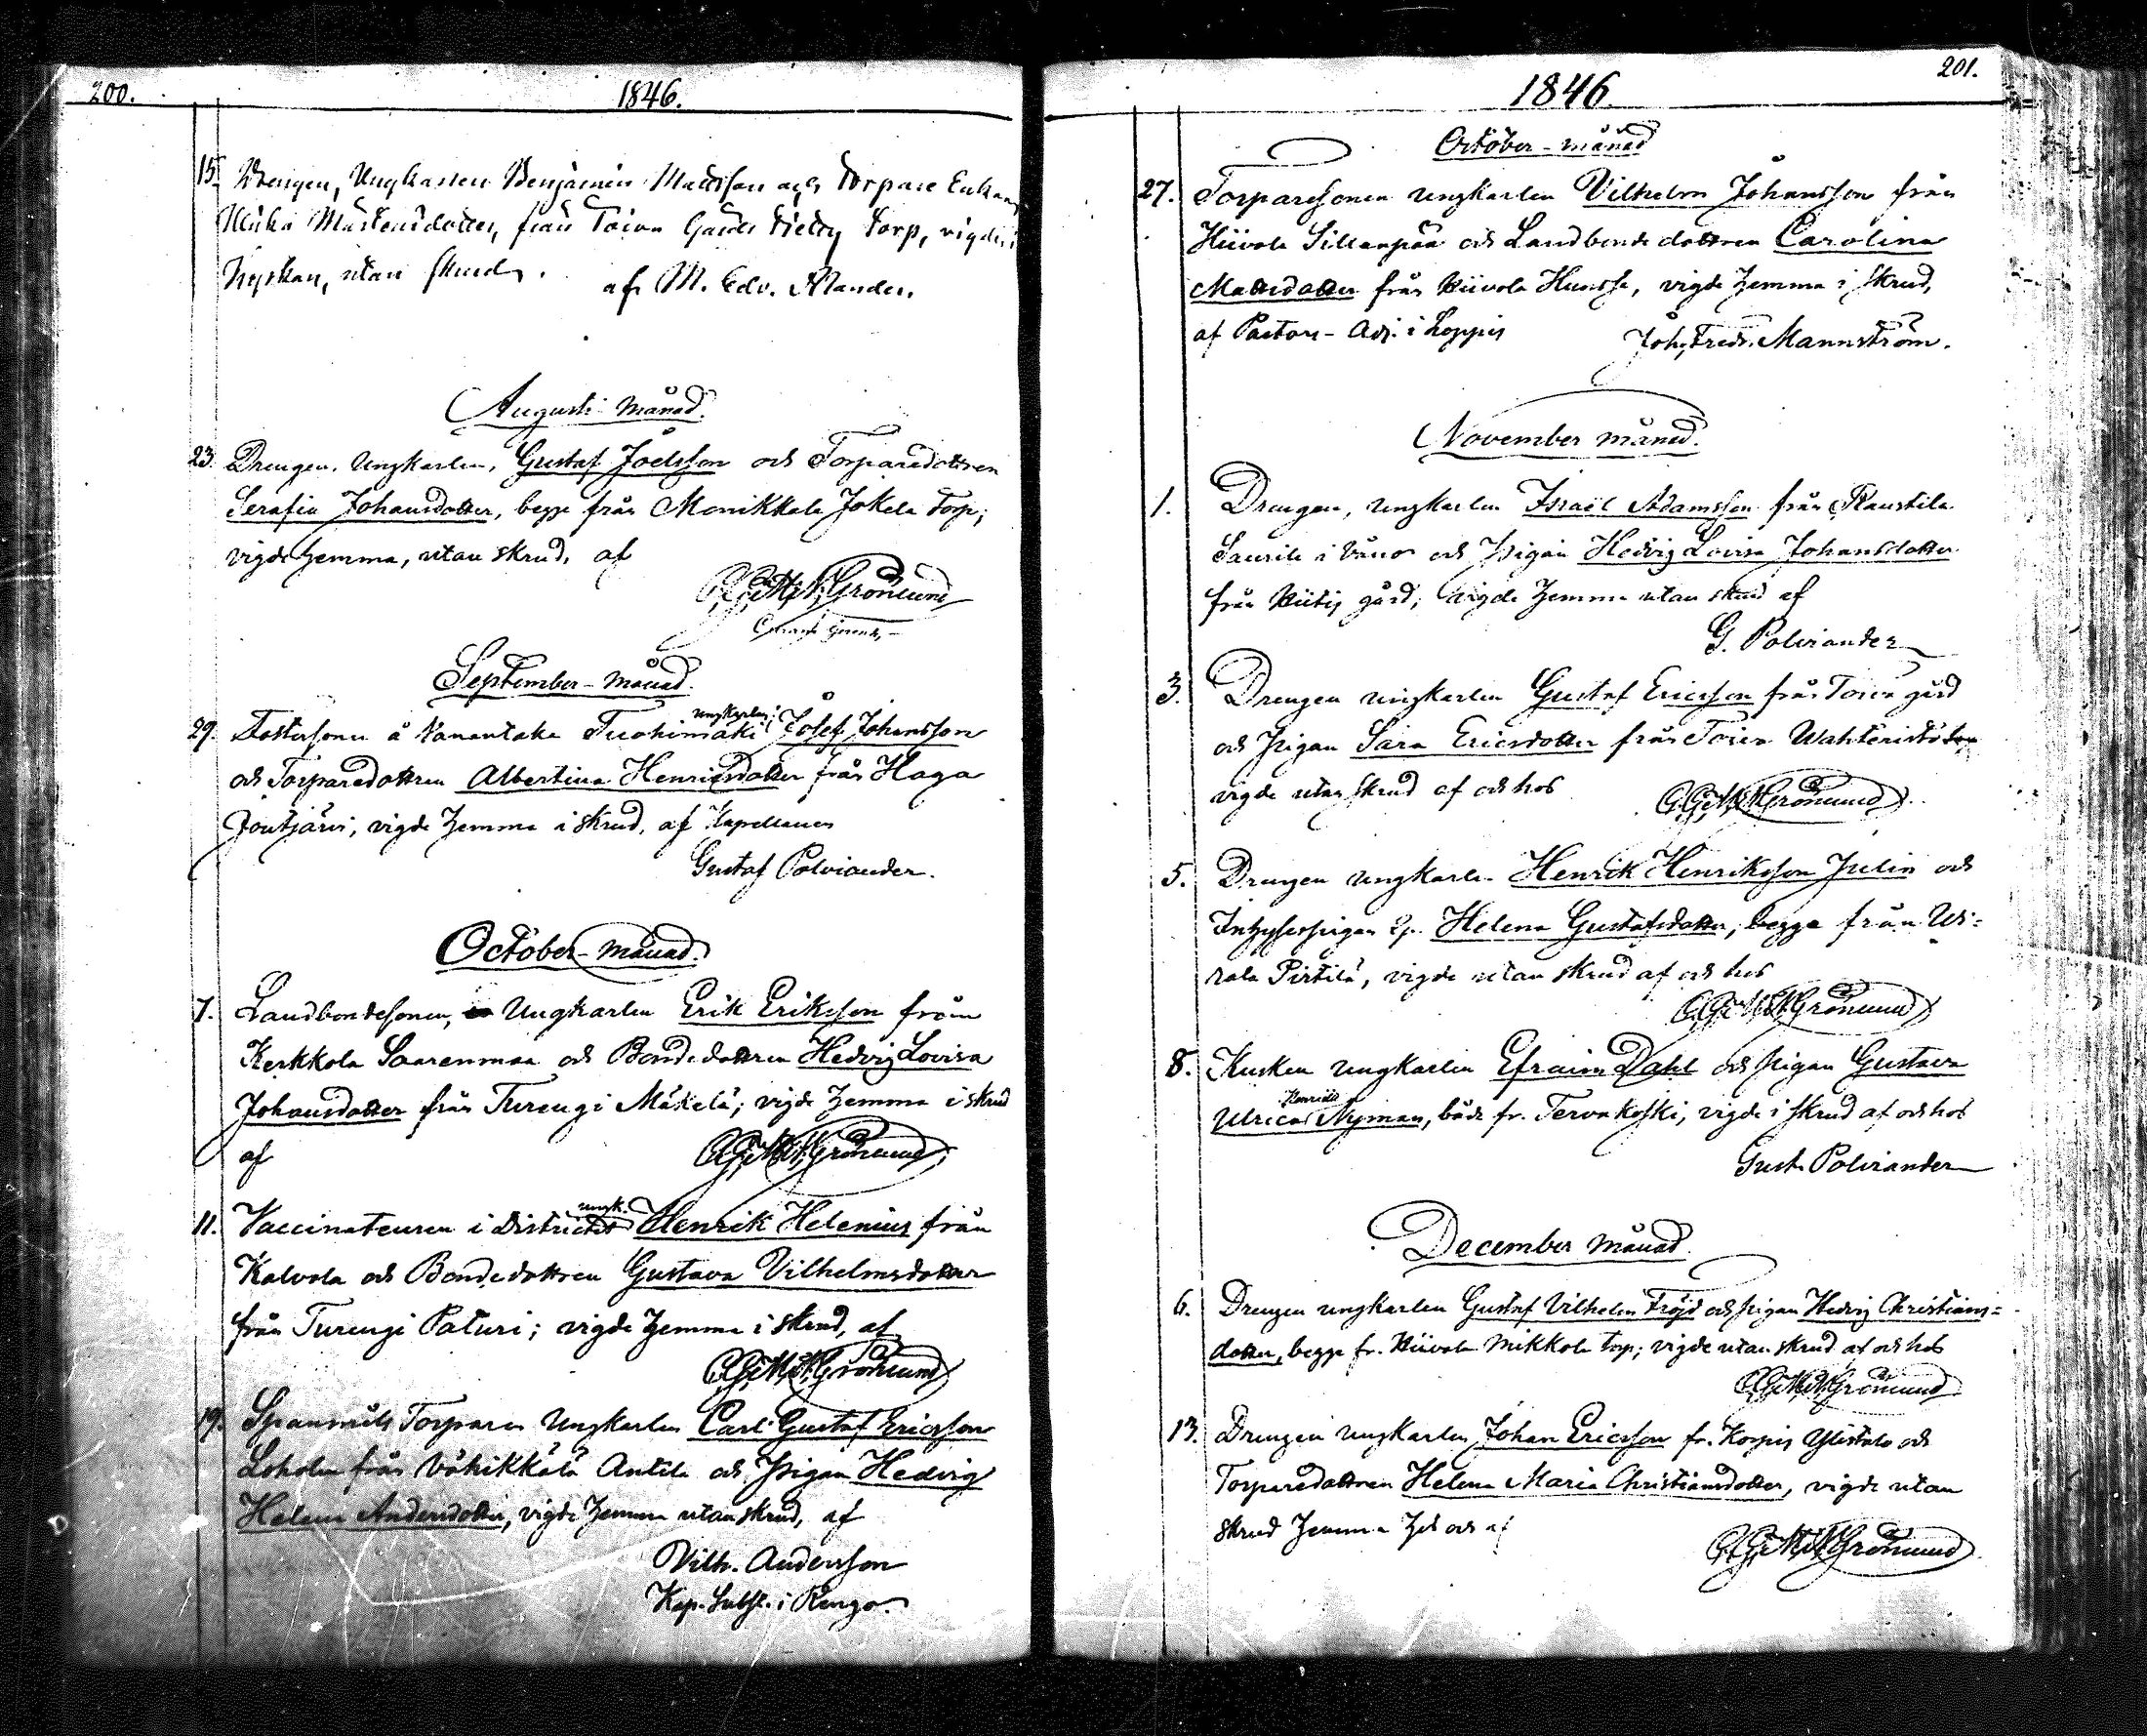 200.
1846.
15. Drengen, Ungkarlen Benjamin Mattsson och Torpare Enkan
Ulrika Mårtensdotter, från Toivo Gårds torp, vigde i
Kyrkan, utan skrud.
af M. Edv. Alander.
Augusti månad.
23. Drengen, Ungkarlen, Gustaf Joelsson och Torparedottren
Serafia Johansdotter, begge från Monikkala Jokela torp;
vigde hemma, utan skrud, af
Grönlund
September månad.
29. Fostersonen å Vanantaka Tuohimäki ungkarlen Josef Johansson
och Torparedottren Albertina Henricsdotter från Haga
Joutjärvi; vigde hemma i skrud, af Kapellanen
Gustaf Polviander.
October-månad.
7. Landbondesonen, Ungkarlen Erik Eriksson från
Kerkkola Saarenmaa och Bondedottren Hedvig Lovisa
Johansdotter från Turengi Mäkelä; vigde hemma i skrud
af
Grönlund
11. Vaccinateuren i Districtet ungk. Henrik Helenius från
Kalvola och Bondedottren Gustava Vilhelmsdotter
från Turengi Paturi; vigde hemma i skrud, af
Grönlund
19. Spanmåls Torparen Ungkarlen Carl Gustaf Ericsson
Loholm från Vähikkälä Antila och Pigan Hedvig
Helena Andersdotter, vigde hemma utan skrud, af
Vilh. Andersson
Kap. Subst. i Rengo.
201.
1846
October-månad
27. Torparesonen ungkarlen Vilhelm Johansson från
Hiivola Sillanpää och Landbondedottren Carolina
Mattsdotter från Hiivola Hunsa, vigde hemma i skrud,
af Pastors-Adj. i Loppis
Joh. Fredr. Mannström.
November månad.
1. Drengen, ungkarlen Israël Adamsson från Raustila
Saurila i Vånå och Pigan Hedvig Lovisa Johansdotter
från gård; vigde hemma utan skrud af
G. Polviander
3. Drengen ungkarlen Gustaf Ericsson från Toivo gård
och Pigan Sara Ericsdotter från Toivo Wahteristö
vigde utan skrud af och hos
Grönlund
5. Drengen ungkarlen Henrik Henriksson Julin och
Inhysespigan Helena Gustafsdotter, begge från Ur-
rala Pirtilä, vigde utan skrud af och hos
Grönlund
8. Kusken ungkarlen Efraim Dahl och Pigan Gustava
Ulrica Henrica Nyman, både fr. Tervakoski, vigde i skrud af och hos
Gust. Polviander
December månad.
6. Drengen ungkarlen Gustaf Vilhelm Fröjd och Pigan Hedvig Christians-
dotter, begge fr. Hiivola Mikkola torp; vigde utan skrud af och hos
Grönlund
13. Drengen ungkarlen Johan Ericsson fr. Korpis Ylistalo och
Torparedottren Helena Maria Christiansdotter, vigde utan
skrud hemma hos och af
Grönlund